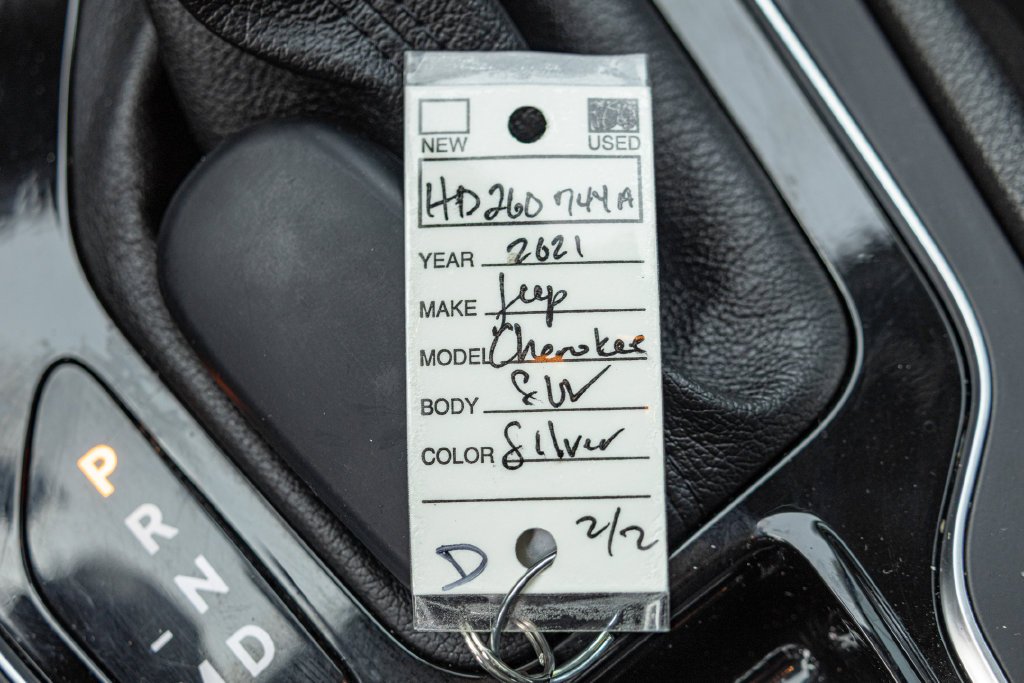 NEW USED
HD260744A
YEAR 2021
MAKE Jeep
MODEL Cherokee
BODY SUV
COLOR Silver
2/2
D
P
R
N
D
M